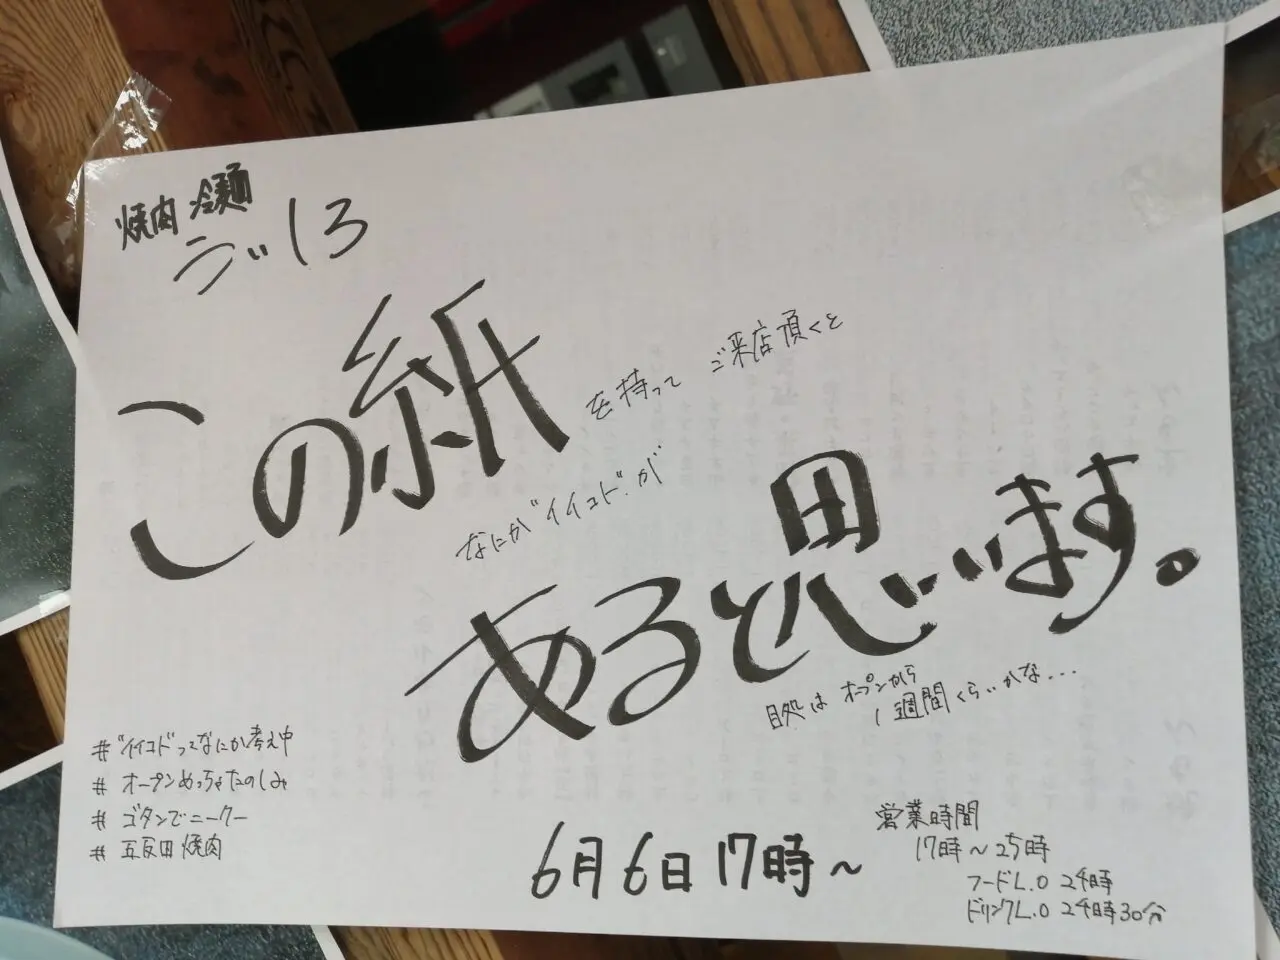 焼肉 冷麺
この紙
を持って ご来店頂くと
なにか"イイコト"が
あると思います。
目処は オープンから
1週間くらいかな...
#"イイコト"ってなにか考え中
# オープンめっちゃたのしみ
# ゴタンでニークー
# 五反田 焼肉
6月6日17時～
営業時間
17時～25時
フードL.O 24時
ドリンクL.O 24時30分